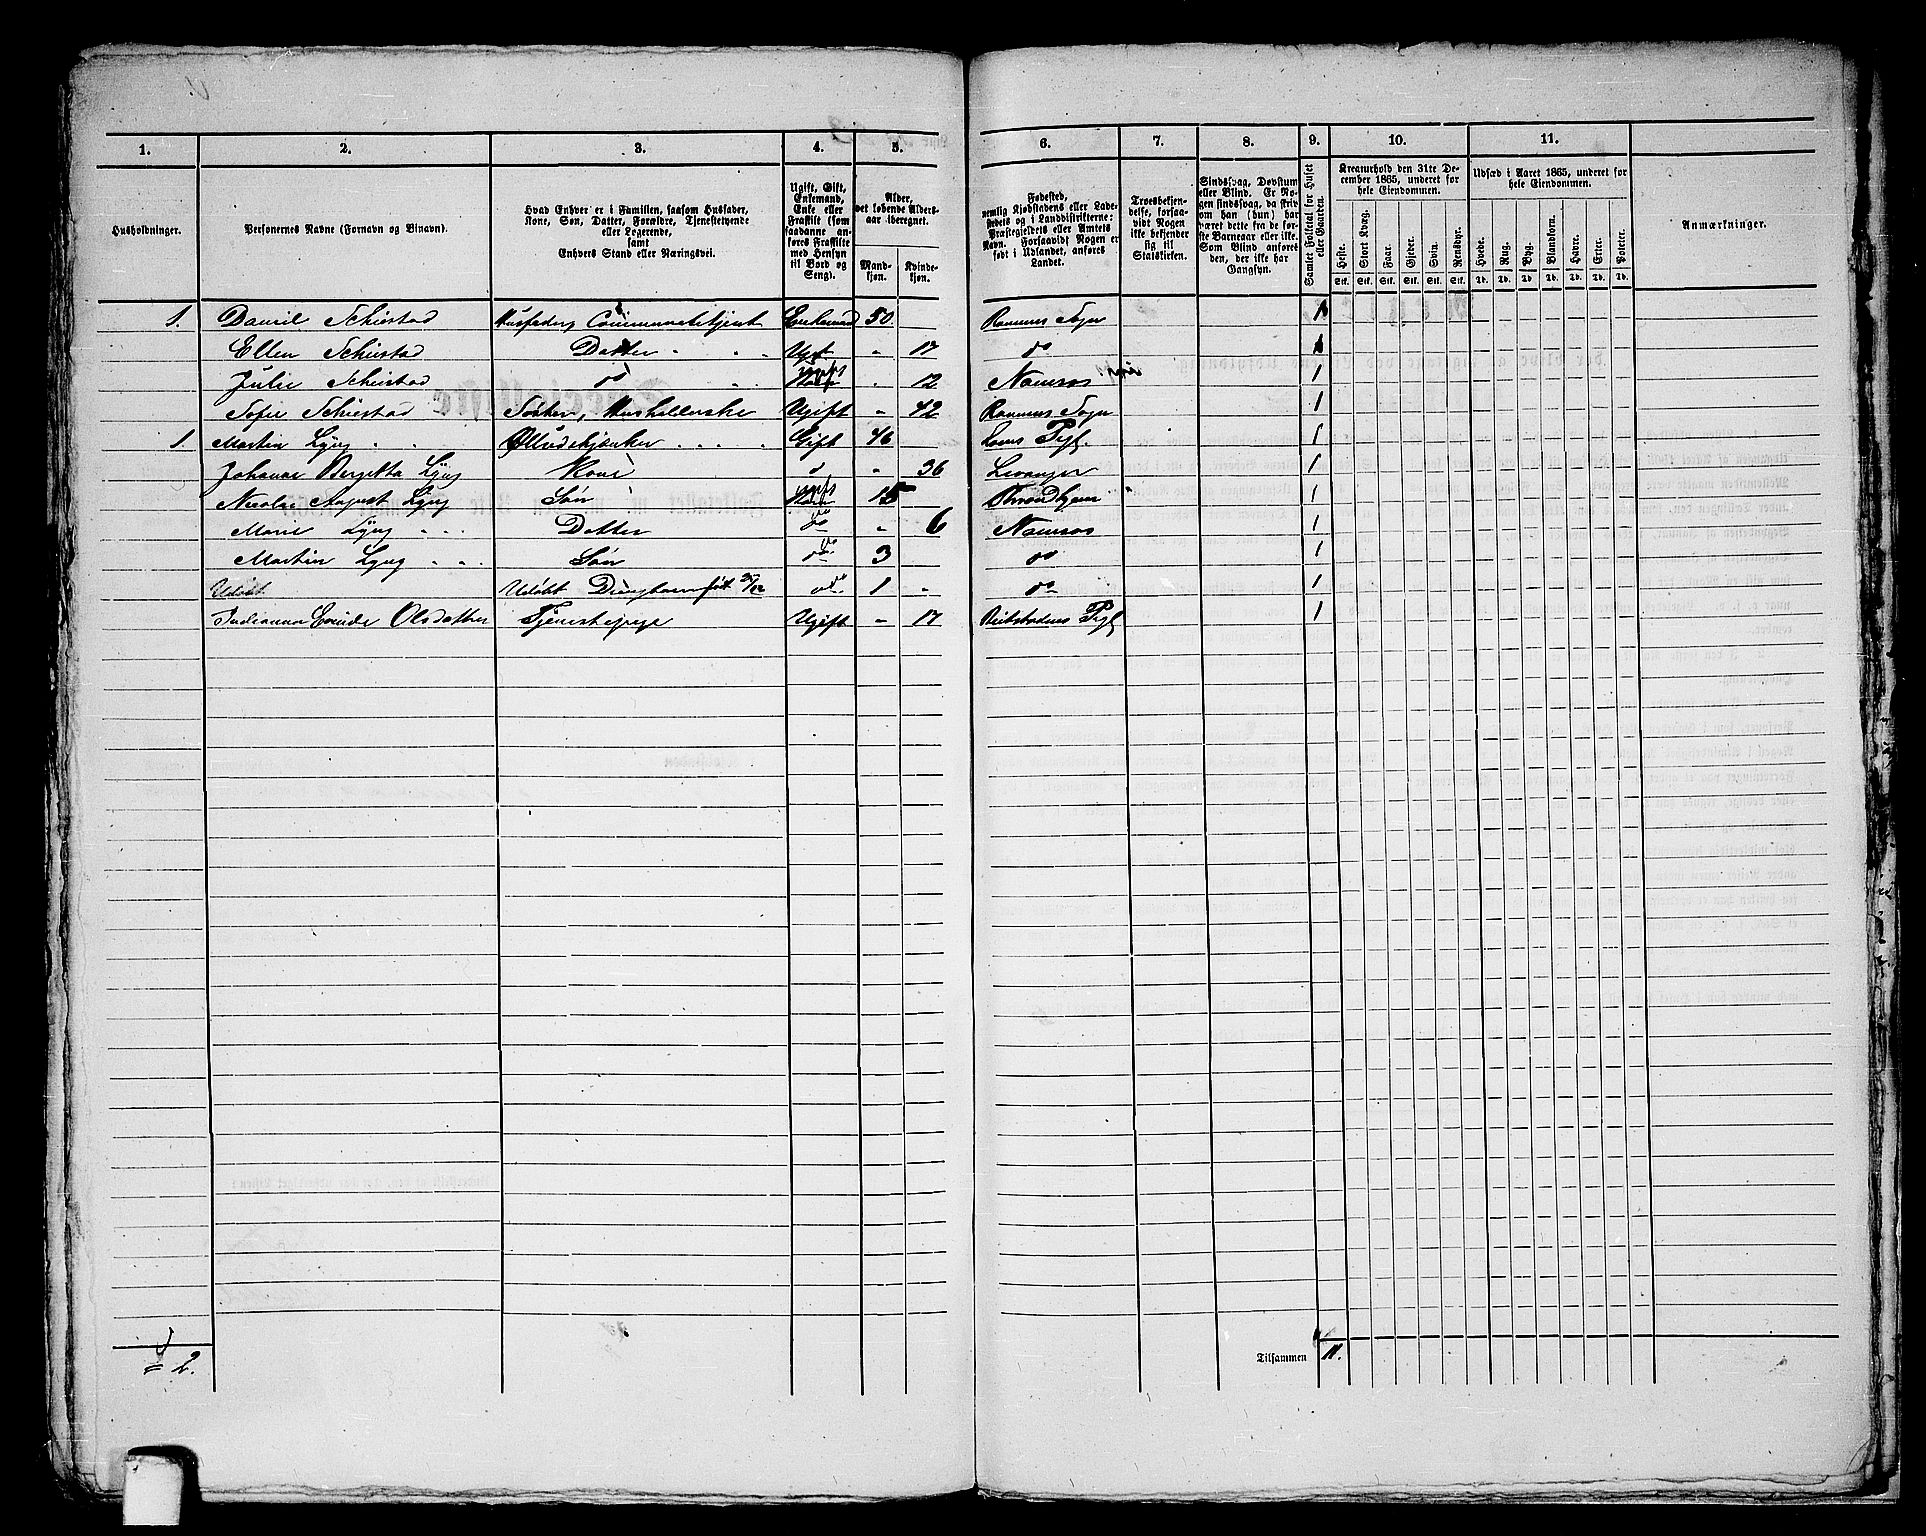 1. 2. 3. 4. 5. 6. 7. 8. 9. 10. 11.
Husholdninger.
Personernes Navne (Fornavn og Binavn).
Hvad Enhver er i Familien, saasom Husfader,
Kone, Søn, Datter, Forældre, Tjenestetyende
eller Logerende,
samt
Enhvers Stand eller Næringsvei.
Ugift, Gift,
Enkemand,
Enke eller
Fraskilt (som
saadanne an-
føres Fraskilte
med Hensyn
til Bord og
Seng).
Alder,
det løbende Alders-
aar iberegnet.
Mand-
kjøn.
Kvinde-
kjøn.
Fødested,
nemlig Kjøbstadens eller Lade-
stedets og i Landdistrikterne:
Præstegjeldets eller Amtets
Navn. Forsaavidt Nogen er
født i Udlandet, anføres
Landet.
Troesbekjen-
delse, forsaa-
vidt Nogen
ikke bekjender
sig til
Statskirken.
Sindssvag, Døvstum
eller Blind. Er No-
gen sindssvag, da skriv
om han (hun) har
været dette fra de før-
ste Barneaar eller ikke.
Som Blind anføres
den, der ikke har
Gangsyn.
Samlet Folketal for Huset
eller Gaarden.
Kreaturhold den 31te De-
cember 1865, underet for
hele Eiendommen.
Heste. Stort Kvæg. Faar. Gjeder. Svin. Rensdyr.
Stk. Stk. Stk. Stk. Stk. Stk.
Udsæd i Aaret 1865, underet for
hele Eiendommen.
Hvede. Rug. Byg. Blandkorn. Havre. Erter. Poteter.
Td. Td. Td. Td. Td. Td. Td.
Anmærkninger.
1. Daniel Schiestad Husfader, Enkemand 50. Ranums Sogn 1
Ellen Schiestad Datter " " Ugift " 17 do 1
Julie Schiestad do " ugift " 12 Namsos 1
Sofie Schiestad Søster, Ugift " 42 Ranums Sogn 1
1. Martin Lyng " " Gift 46 Pgl. 1
Johanna Lyng Kone " " 36 Levanger 1
Nicolai August Lyng Søn ugift 15 Throndhjem 1
Marie Lyng " " Datter do " 6 Namsos 1
Martin Lyng " " Søn do 3 do 1
Udøbt Udøbt født do 1 " do 1
Olsdatter Tjenestepige Ugift " 17 Pgl 1
= 2.
Tilsammen 11.